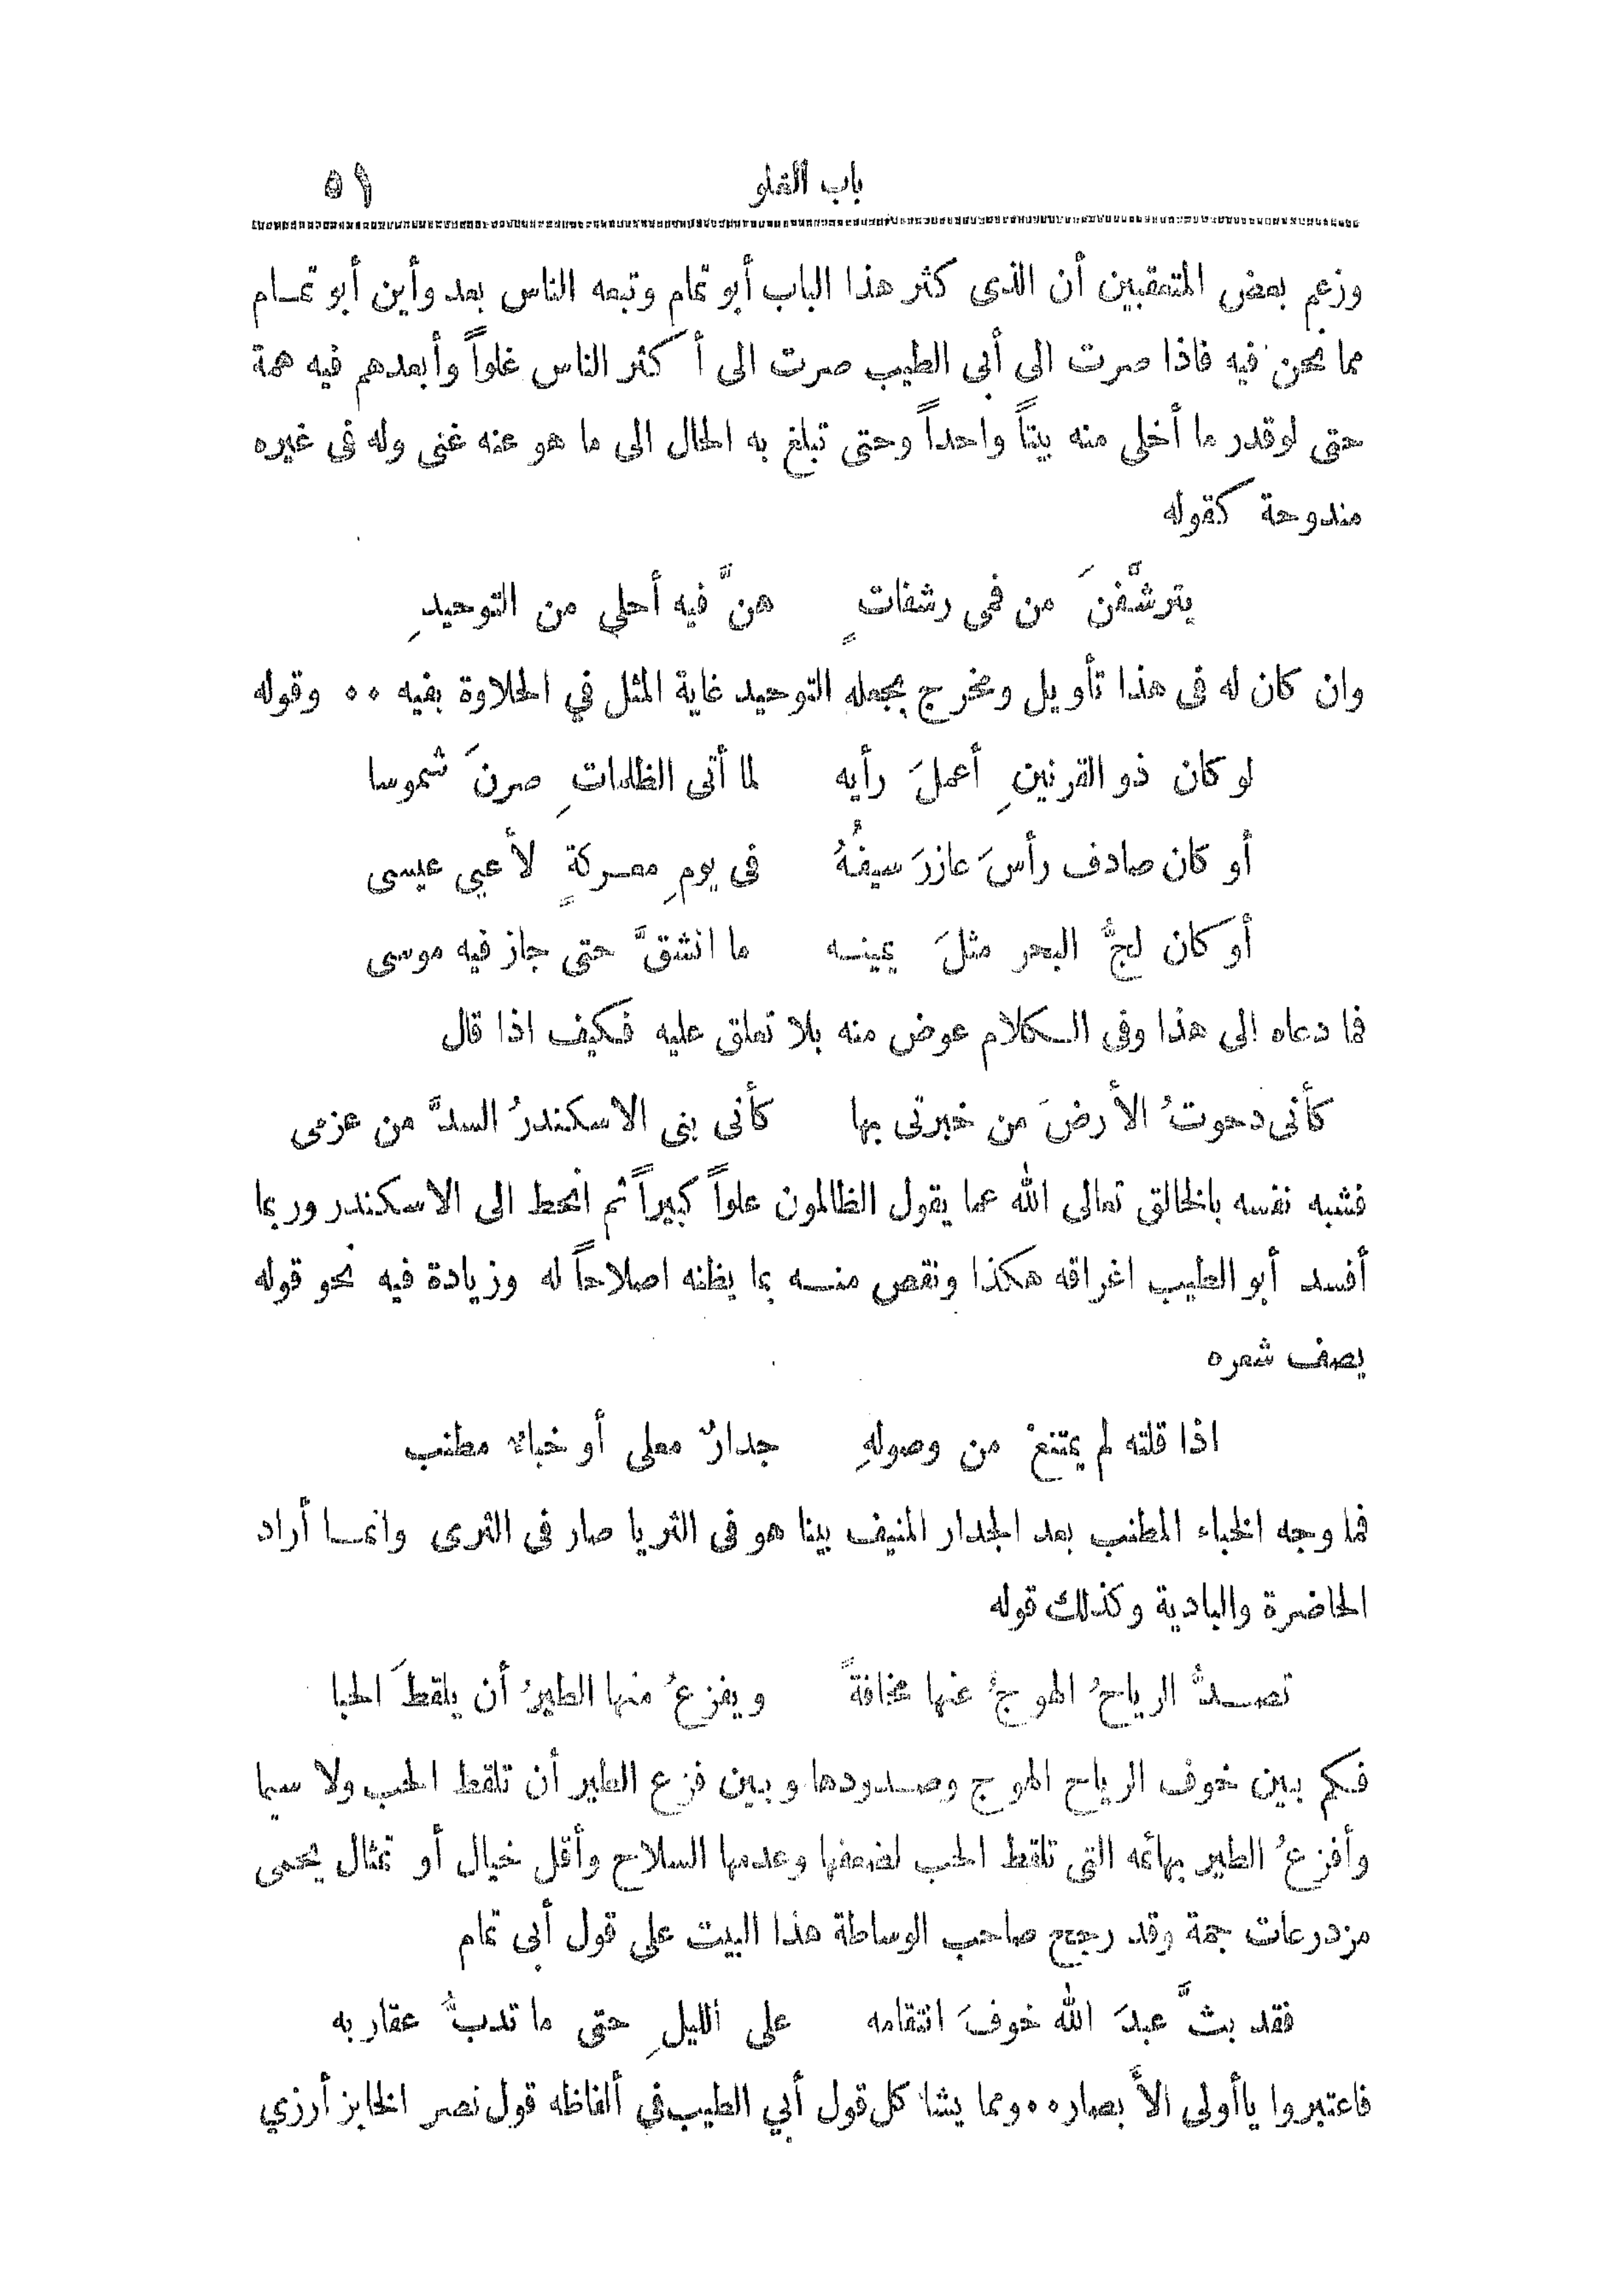 باب الغلو ٥١
وزعم بعض المتعقبين أن الذى كثر هذا الباب أبو تمام وتبعه الناس بعد وأين أبو تمام
مما نحن فيه فاذا صرت الى أبى الطيب صرت الى أكثر الناس غلواً وأبعدهم فيه همة
حتى لوقدر ما أخلى منه بيتاً واحداً وحتى تبلغ به الحال الى ما هو عنه غنى وله فى غيره
مندوحة كقوله
يترشَّفنَ من فمى رشفاتٍ هنَّ فيه أحلى من التوحيدِ
وان كان له فى هذا تأويل ومخرج بجعله التوحيد غاية المثل في الحلاوة بفيه ٠٠ وقوله
لو كان ذو القرنينِ أعملَ رأيه لما أتى الظلماتِ صرنَ شموسا
أو كان صادف رأسَ عازرَ سيفُهُ فى يومِ معركةٍ لأعيي عيسى
أو كان لجُّ البحر مثلَ يمينه ما انشقَّ حتى جاز فيه موسى
فما دعاه إلى هذا وفى الكلام عوض منه بلا تعلق عليه فكيف اذا قال
كأنى دحوتُ الأرضَ من خبرتى بها كأنى بنى الاسكندرُ السدَّ من عزمى
فشبه نفسه بالخالق تعالى الله عما يقول الظالمون علواً كبيراً ثم انحط الى الاسكندر وربما
أفسد أبو الطيب اغراقه هكذا ونقص منه بما يظنه اصلاحاً له وزيادة فيه نحو قوله
يصف شعره
اذا قلته لم يمتنعْ من وصولهِ جدارٌ معلى أو خباءٌ مطنب
فما وجه الخباء المطنب بعد الجدار المنيف بينا هو فى الثريا صار فى الثرى وانما أراد
الحاضرة والبادية وكذلك قوله
تصدُّ الرياحُ الهوجُ عنها مخافةً ويفزعُ منها الطيرُ أن يلقطَ الحبا
فكم بين خوف الرياح الهوج وصدودها وبين فزع الطير أن تلقط الحب ولا سيما
وأفزعُ الطير بهائمه التى تلقط الحب لضعفها وعدمها السلاح وأقل خيال أو تمثال يحمى
مزدرعات جمة وقد رجح صاحب الوساطة هذا البيت على قول أبى تمام
فقد بثَّ عبدَ الله خوفَ انتقامه على الليلِ حتى ما تدبُّ عقاربه
فاعتبروا ياأولى الأبصار ٠٠ ومما يشاكل قول أبي الطيب في ألفاظه قول نصر الخابز أرزي